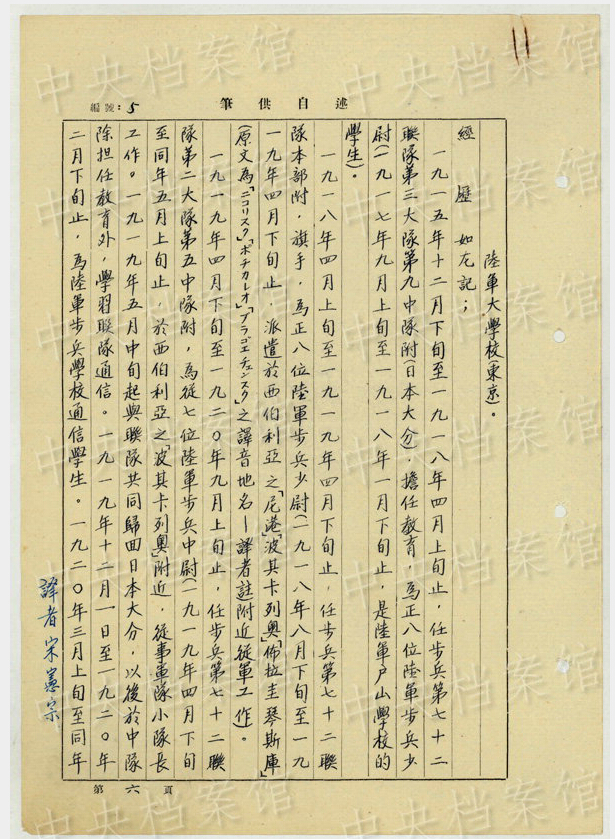 編號：5
筆供自述
陸軍大學校(東京)。
經歷 如左記；
一九一五年十二月下旬至一九一八年四月上旬止，任步兵第七十二
聯隊第三大隊第九中隊附(日本大分)，擔任教育，爲正八位陸軍步兵少
尉(一九一七年九月上旬至一九一八年一月下旬止，是陸軍戶山學校的
學生)。
一九一八年四月上旬至一九一九年四月下旬止，任步兵第七十二聯
隊本部附，旗手，爲正八位陸軍步兵少尉(一九一八年八月下旬至一九
一九年四月下旬止，派遣於西伯利亞之「尼港」「波其卡列奧」「佈拉圭琴斯庫」
(原文爲「ニコリスク」「ポチカレオ」「ブラゴエチェンスク」之譯音地名—譯者註附近從軍工作)。
一九一九年四月下旬至一九二〇年九月上旬止，任步兵第七十二聯
隊第二大隊第五中隊附，爲從七位陸軍步兵中尉(一九一九年四月下旬
至同年五月上旬止，於西伯利亞之「波其卡列奧」附近，從事軍隊小隊長
工作。一九一九年五月中旬起與聯隊共同歸回日本大分，以後於中隊
除担任教育外，學習聯隊通信。一九一九年十二月一日至一九二〇年
二月下旬止，爲陸軍步兵學校通信學生。一九二〇年三月上旬至同年
譯者 宋憲宗
第六頁
中央档案馆